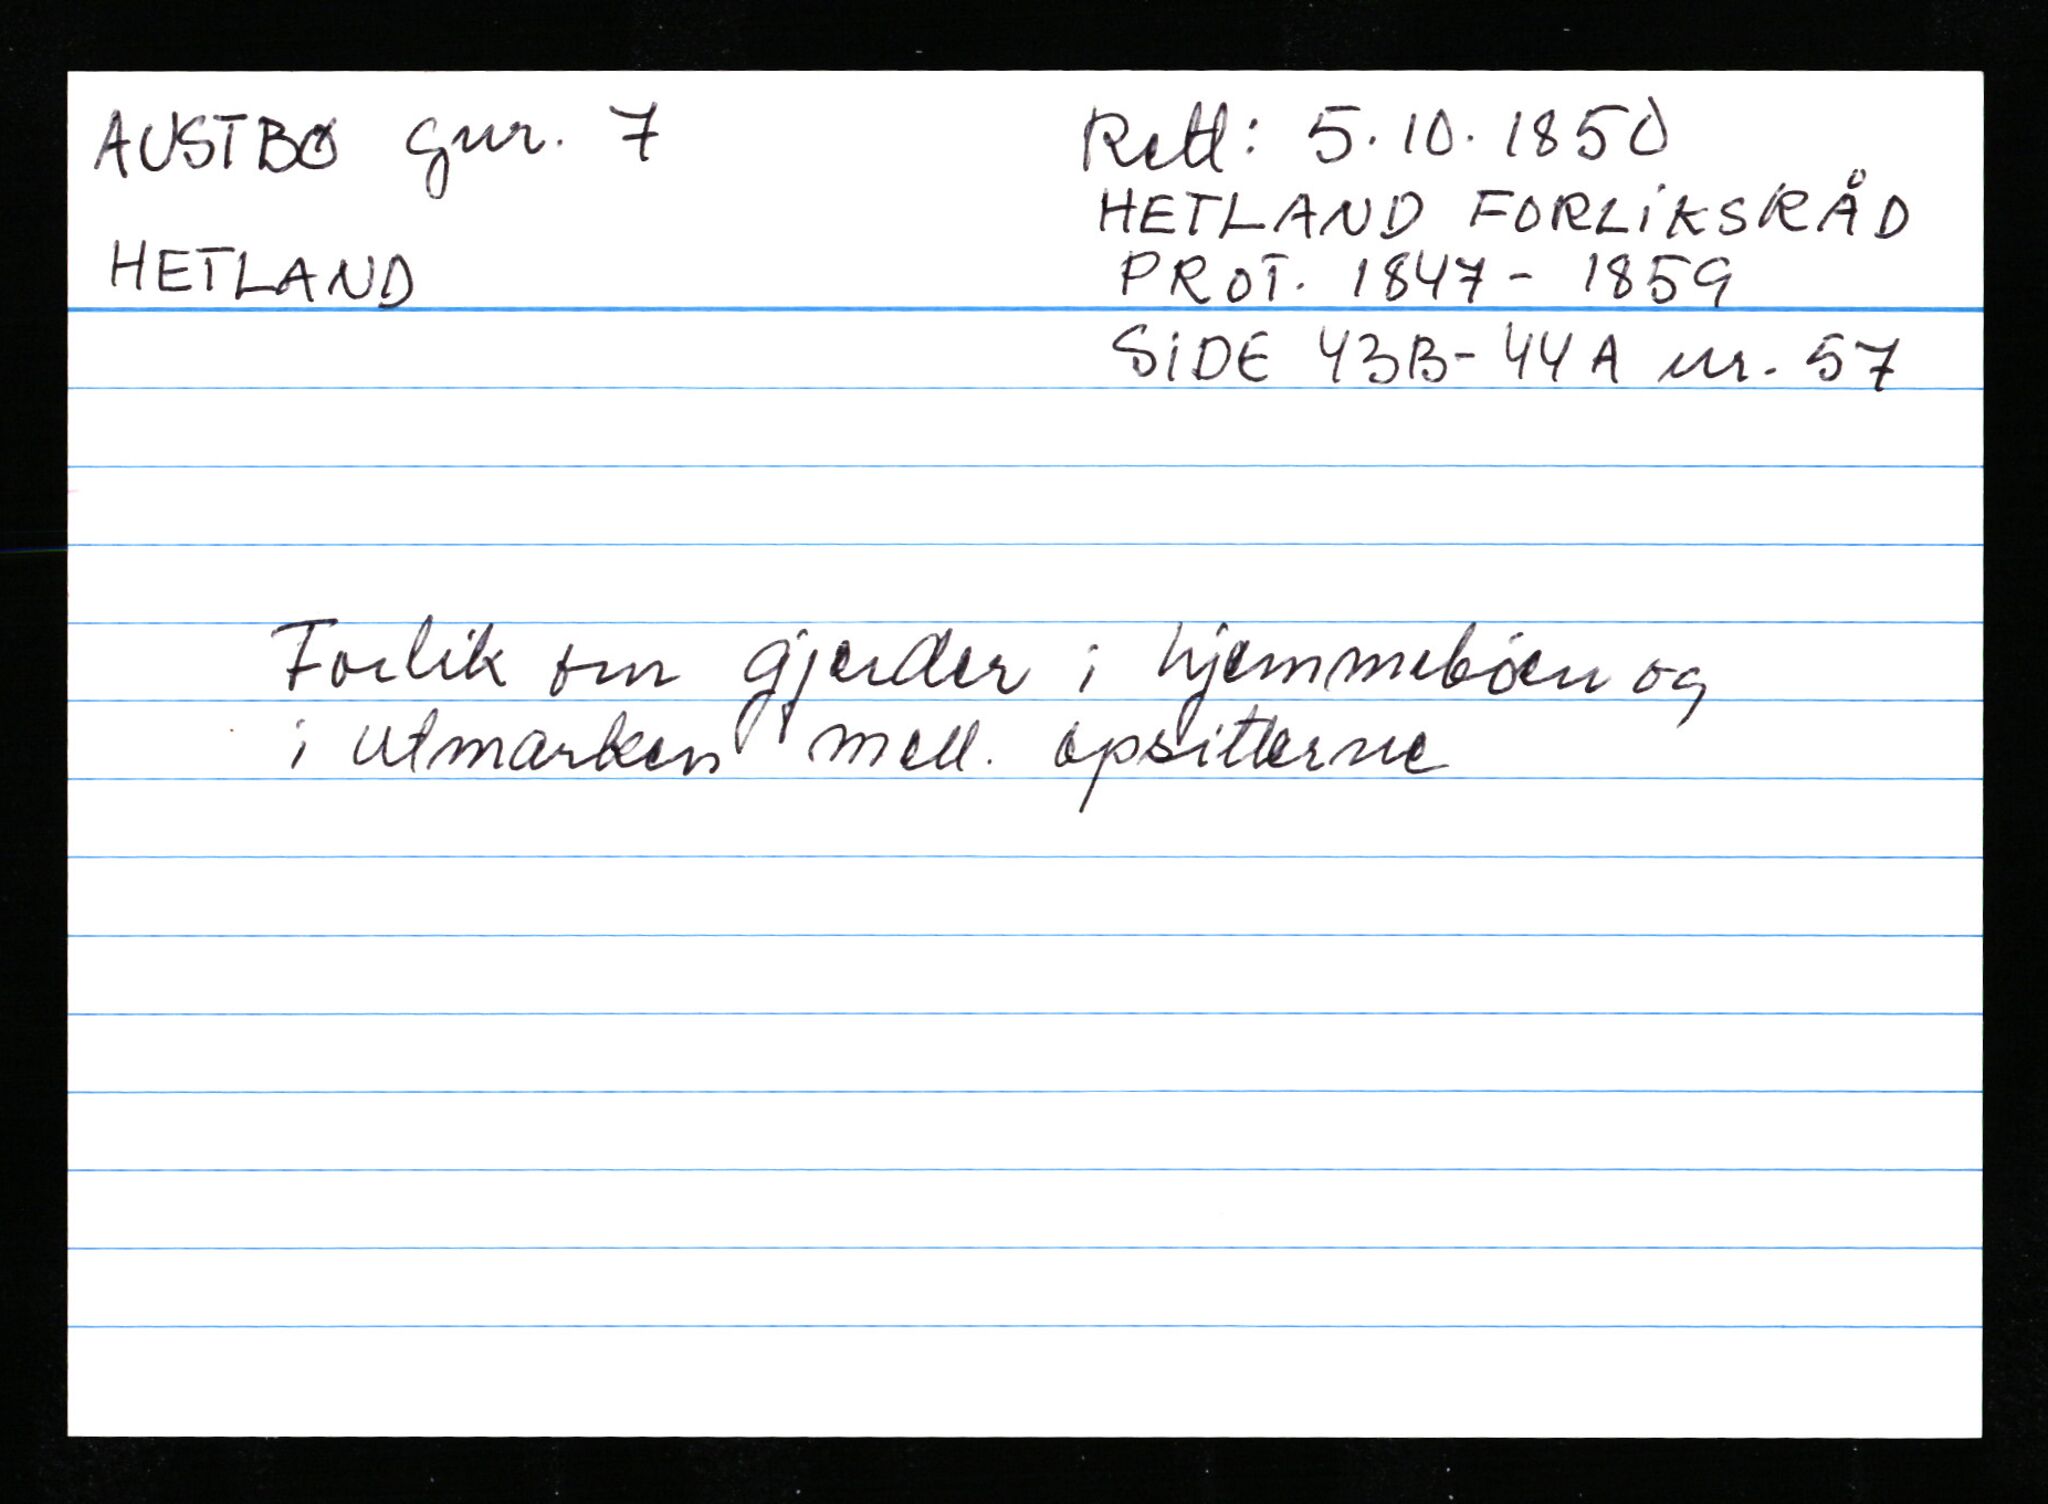 AUSTBØ gnr. 7
HETLAND
Rett: 5.10.1850
HETLAND FORLIKSRÅD
PROT. 1847 - 1859
SIDE 43B - 44A nr. 57
Forlik om gjerder i hjemmebøen og
i utmarken mell. opsitterne